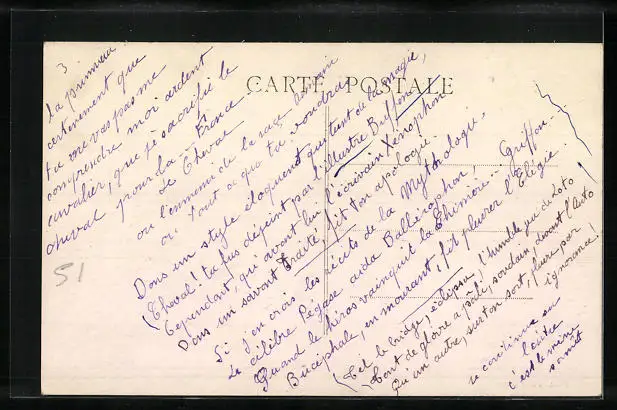 CARTE POSTALE
3
la primeur
certainement que
tu ne vas pas me
comprendre moi ardent
cavalier, que je sacrifie le
cheval pour la France
Le Cheval
ou l'ennemi de la race
ou tout ce que tu voudras
Dans un style éloquent qui tient de la magie,
Cheval! tu fus dépeint par l'illustre Buffon
Cependant, qu'avant lui l'écrivain Xénophon
Dans un savant traité fit ton apologie.
Si j'en crois les récits de la Mythologie,
Le célèbre Pégase aida Bellérophon,
Quand le héros vainquit la Chimère... Griffon...
Bucéphale, en mourant, fit pleurer l'Elégie.
Tel le bridge éclipse l'humble jeu de Loto
Tant de gloire a pâli, soudain, devant l'Auto
Qu'un autre, sur ton sort, pleure par
ignorance!
se continue sur
l'autre
c'est le même
sonnet
51